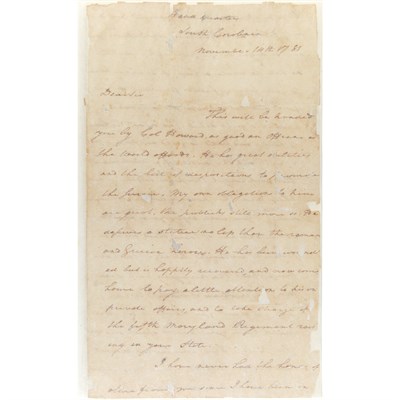 Head quarters
South Carolina
November 14th 1781
Dear Sir
This will be handed
you by Col Howard as good an officer as
the world affords. He has great abilities
and the best of dispositions to promote
the service. My own obligations to him
are great, the publick still more so. He
deserves a statue no less than the roman
and Grecian heroes. He has been wound
ed but is happily recovered, and now comes
home to pay a little attention to his
private affairs, and to take charge of
the fifth Maryland Regiment
ing in your State.
I have never had the honor